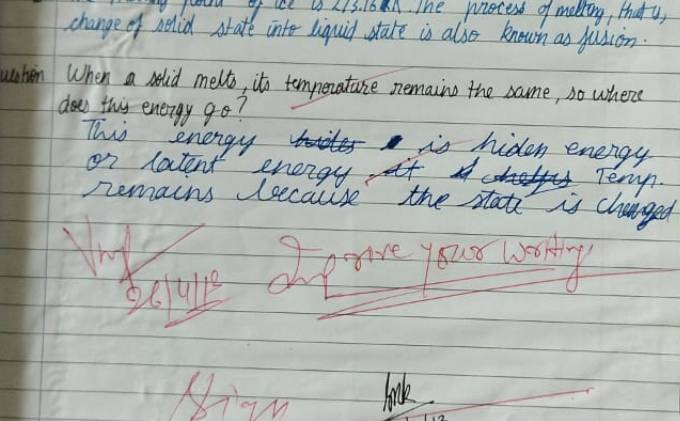 of ice is 273.16 K. The process of melting, that is,
change of solid state into liquid state is also known as fusion.
uestion When a solid melts, its temperature remains the same, so where
does this energy go?
This energy hides is hiden energy
or latent energy it helps Temp.
remains because the state is changed
26/4/18 Improve your writing
Sign